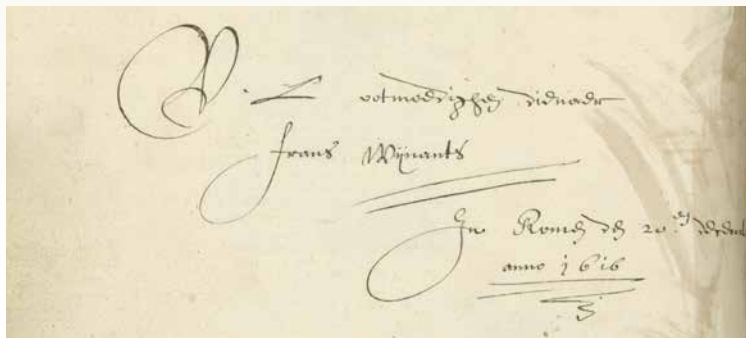 V. L ootmoedighen dienaer
frans Wijnants
In Romen den 20.en decem
anno 1616